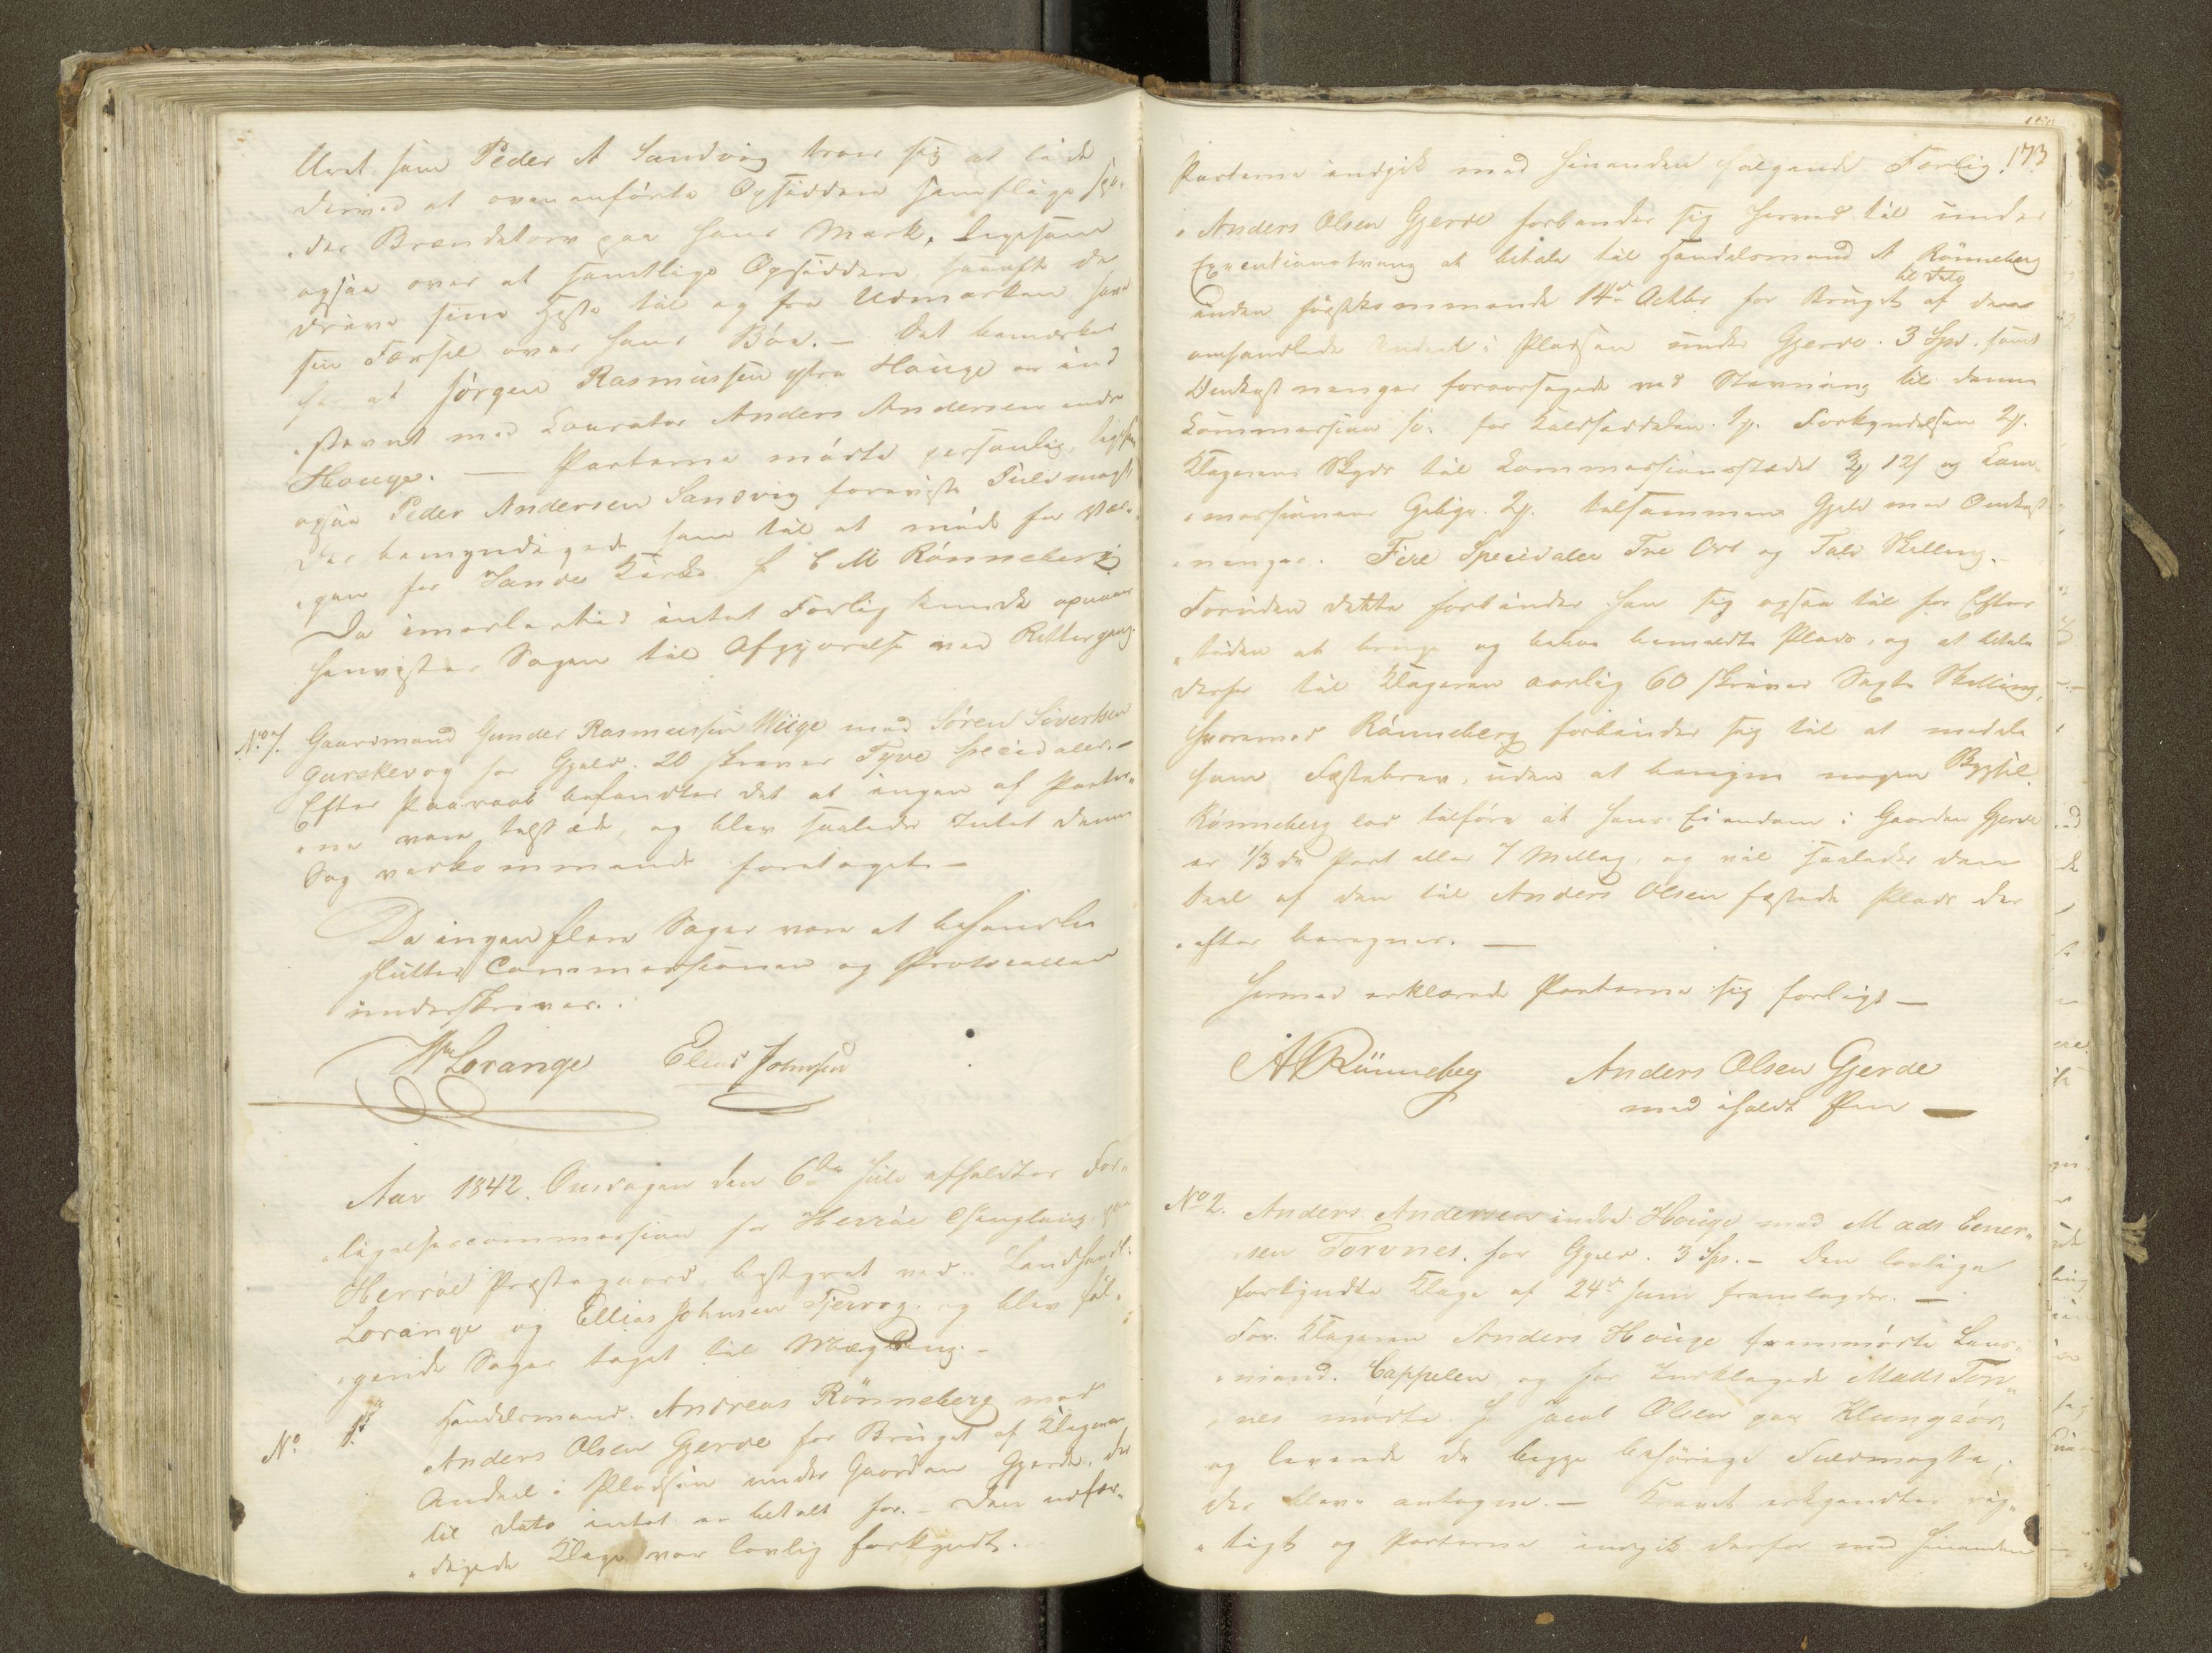 Uret som Peder A Sandvig troer sig at lide
derved at ovenanførte Opsiddere samtlige
der Brændetorv paa hans Mark, ligesom
ogsaa over at samtlige Opsiddere, saaofte de
drive sine Heste til og fra Udmarken have
sin Færsel over hans Bøe. – Det bemærkes
at Jørgen Rasmussen ytra Houge er ind
stævnet med Courator Anders Andersen indre
Houge. — Parterne mødte personlig, ligesom
ogsaa Peder Andersen Sandvig foreviste Fuldmagt
der bemyndigede ham til at møde for Vær-
gen for Sande Kirke Hr C M Rönneberg
Da imidlertid intet Forlig kunde opnaaes
henvistes Sagen til Afgjørelse ved Rettergang.
No 7. Gaardmand Gunder Rasmussen Wiige mod Sören Sivertsen
Gurskevog for Gjæld. 20 skriver Tyve Speciedaler. –
Efter Paaraab befandtes det at ingen af Parter-
ne vare tilstæde, og blev saaledes Intet denne
Sag vedkommende foretaget. –
Da ingen flere Sager vare at behandle
slutter Commissionen og Protocollen
underskrives.
Lorange Elias Johnsen
Aar 1842. Onsdagen den 6te Juli afholdtes For-
ligelsescommission for Herröe Thinglaug paa
Herröe Præstegaard, bestyret ved Landhandl:
Lorange og Ellias Johnsen Tjervog. og blev føl-
gende Sager taget til Mægling. –
No 1. Handelsmand. Andreas Rönneberg mod
Anders Olsen Gjerde for Bruget af Klagerens
Andeel i Pladsen under Gaarden Gjerde, der
til Dato intet er betalt for. – Den udfær-
digede Klage var lovlig forkyndt.
173
Parterne indgik med hinanden følgende Forlig.
Anders Olsen Gjerde forbinder sig herved til under
Executionstvang at betale til Handelsmand A Rönneberg
inden førstkommende 14de Octbr for Bruget til Dato af den
omhandlede Andeel i Pladsen under Gjerde. 3 Spd. samt
Omkostninger foraarsagede ved Stævning til denne
Commission for Kaldseddelen 1ß. Forkyndelsen 2ß.
Klagerens Skyds til Commissionsstædet 3ß 12ß og Com-
missionens Gebyr. 2ß. tilsammen Gjeld med Omkost-
ninger. Fire Speciedaler Tre Ort og Tolv Skilling. –
Foruden dette forbinder han sig ogsaa til for Efter-
tiden at bruge og beboe bemeldte Plads, og at betale
derfor til Klageren aarlig 60 skriver Sexti Skilling,
hvorimod Rönneberg forbinder sig til at meddele
ham Fæstebrev, uden at beregne nogen Bygsel.
Rönneberg lod tilføre at hans Eiendom i Gaarden Gjerde
er 1/3 de Part eller 7 Mællag, og vil saaledes den
Deel af den til Anders Olsen fæstede Plads der-
efter beregnes. —
Hermed erklærede Parterne sig forligt —
A Rönneberg Anders Olsen Gjerde
med iholdt Pen —
No 2. Anders Andersen indre Houge mod Mads Ener-
sen Torvnes. for Gjæld. 3 Sp. – Den lovlige
forkyndte Klage af 24de Juni fremlagdes. —
For Klageren Anders Houge fremmødte Lens-
mand. Cappelen og for Indklagede Mads Torv-
nes mødte Hr Jacob Olsen paa Klungsør,
og leverede de begge behørige Fuldmagter,
der blev antagne. – Kravet erkjendtes rig-
tigt og Parterne indgik derfor med hinanden